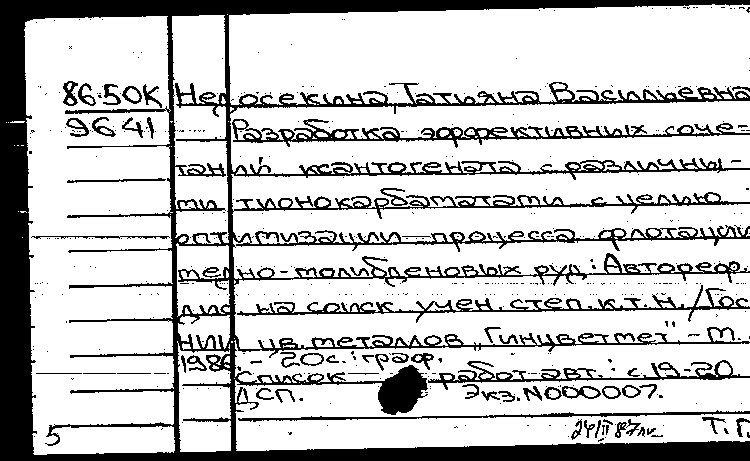 86-50К Недосекина, Татьяна Васильевна
9641 Разработка эффективных соче=
таний ксантогената с различны-
ми тионокарбаматами с целью
оптимизации процесса флотации
медно-молибденовых руд: Автореф.
дис. на соиск. учен. степ. к.т.н. / Гос
НИИ цв. металлов "Гинцветмет" - М.
1986 - 20с.: граф.
Список работ авт.: с.19-20
ДСП. Экз.N000007.
5 24/II 87 Т. Г.